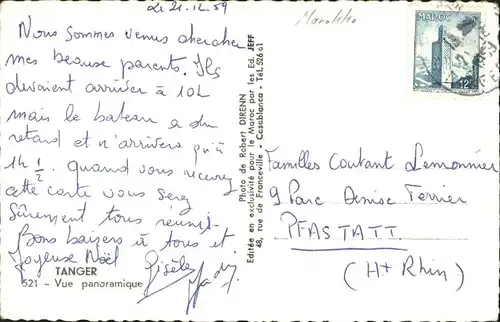 Le 21.12.59
Nous sommes venus chercher
mes beaux parents. Ils
devaient arriver à 10h
mais le bateau a du
retard et n'arrivera qu'à
14h ½. quand vous recevrez
cette carte vous serez
sûrement tous réunis.
Bons baisers à tous et
Joyeuse Noël
Gisèle
TANGER
521 - Vue panoramique
Photo de Robert DIRENN
Editée en exclusivité pour le Maroc par les Ed. JEFF
48, rue de Franceville - Casablanca - Tél. 526 61
Marokko
MAROC
12F
Familles Coutant Lemonnier
9 Parc Denise Ferrier
PFASTATT
(Ht Rhin)